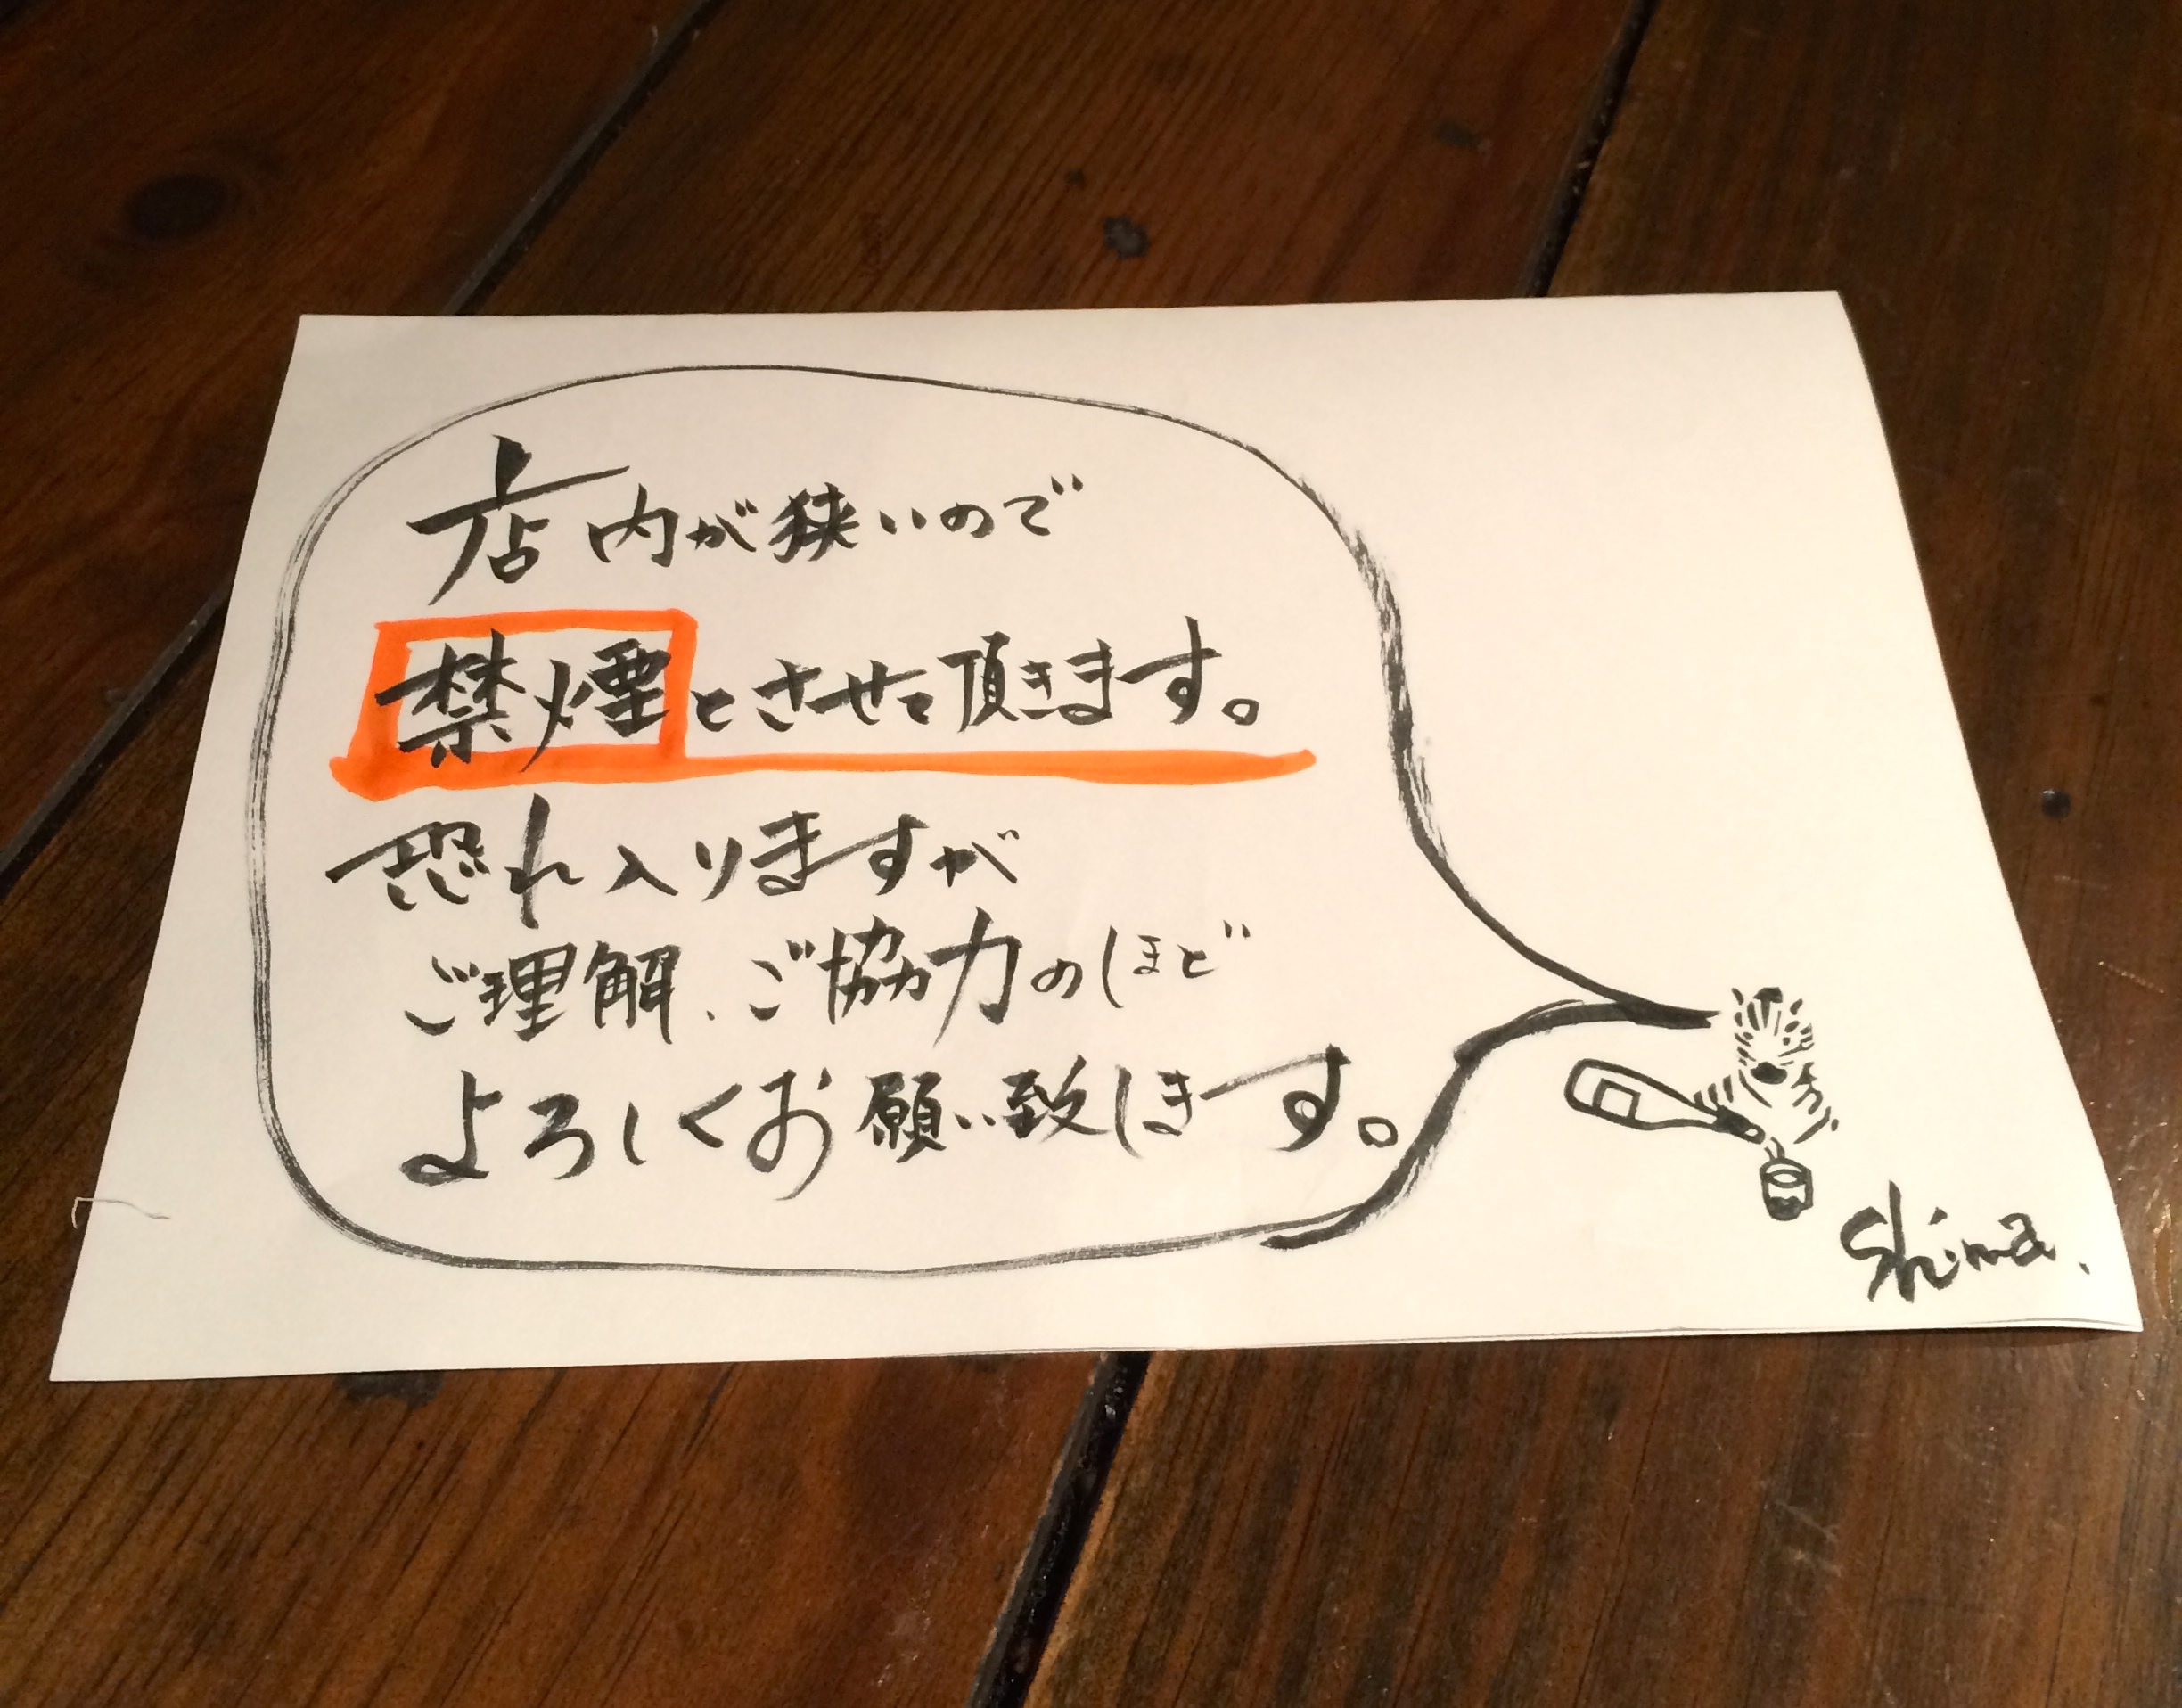 店内が狭いので
禁煙とさせて頂きます。
恐れ入りますが
ご理解、ご協力のほど
よろしくお願い致します。
Shima.